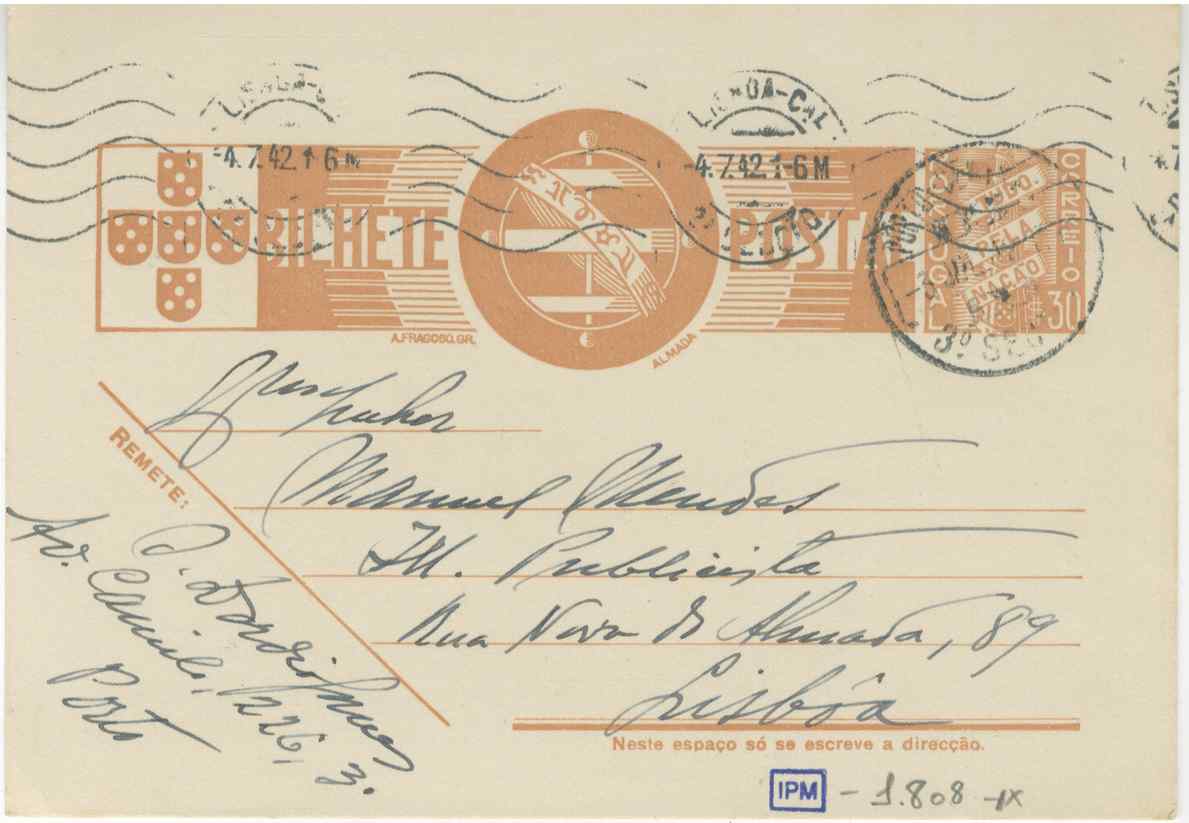 LISBOA-CAL
-4.7.42.1-6 M
-4.7.42.1-6 M
BILHETE
POSTAL
TUDO PELA
NAÇÃO
PORTUGAL
CORREIO
$30
3º SEC
A.FRAGOSO.GR.
ALMADA
Senhor
Manuel Mendes
Publicista
Rua Nova de Almada, 89
Lisbôa
REMETE:
Av. Camilo, 226, 3.
Porto
Neste espaço só se escreve a direcção.
IPM - 1.808 -IX